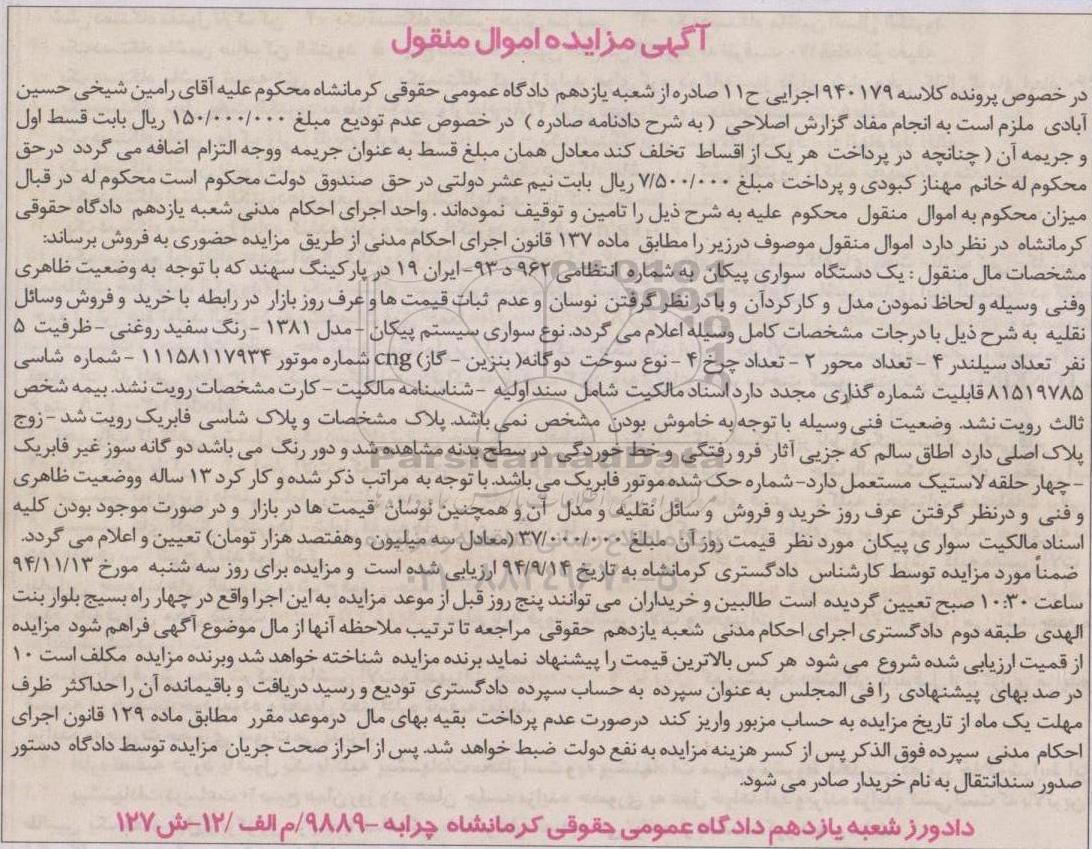 آگهی مزایده اموال منقول
در خصوص پرونده کلاسه ۹۴۰۱۷۹ اجرایی ح۱۱ صادره از شعبه یازدهم دادگاه عمومی حقوقی کرمانشاه محکوم علیه آقای رامین شیخی حسین
آبادی ملزم است به انجام مفاد گزارش اصلاحی ( به شرح دادنامه صادره ) در خصوص عدم تودیع مبلغ ۱۵۰/۰۰۰/۰۰۰ ریال بابت قسط اول
و جریمه آن ( چنانچه در پرداخت هر یک از اقساط تخلف کند معادل همان مبلغ قسط به عنوان جریمه ووجه التزام اضافه می گردد درحق
محکوم له خانم مهناز کبودی و پرداخت مبلغ ۷/۵۰۰/۰۰۰ ریال بابت نیم عشر دولتی در حق صندوق دولت محکوم است محکوم له در قبال
میزان محکوم به اموال منقول محکوم علیه به شرح ذیل را تامین و توقیف نموده‌اند . واحد اجرای احکام مدنی شعبه یازدهم دادگاه حقوقی
کرمانشاه در نظر دارد اموال منقول موصوف درزیر را مطابق ماده ۱۳۷ قانون اجرای احکام مدنی از طریق مزایده حضوری به فروش برساند:
مشخصات مال منقول : یک دستگاه سواری پیکان به شماره انتظامی ۹۶۲ د ۹۳-ایران ۱۹ در پارکینگ سهند که با توجه به وضعیت ظاهری
وفنی وسیله و لحاظ نمودن مدل و کارکردآن و با در نظر گرفتن نوسان و عدم ثبات قیمت ها و عرف روز بازار در رابطه با خرید و فروش وسائل
نقلیه به شرح ذیل با درجات مشخصات کامل وسیله اعلام می گردد. نوع سواری سیستم پیکان - مدل ۱۳۸۱ - رنگ سفید روغنی - ظرفیت ۵
نفر تعداد سیلندر ۴ - تعداد محور ۲ - تعداد چرخ ۴ - نوع سوخت دوگانه( بنزین - گاز) cng شماره موتور ۱۱۱۵۸۱۱۷۹۳۴ - شماره شاسی
۸۱۵۱۹۷۸۵ قابلیت شماره گذاری مجدد دارد اسناد مالکیت شامل سند اولیه - شناسنامه مالکیت - کارت مشخصات رویت نشد. بیمه شخص
ثالث رویت نشد. وضعیت فنی وسیله با توجه به خاموش بودن مشخص نمی باشد. پلاک مشخصات و پلاک شاسی فابریک رویت شد - زوج
پلاک اصلی دارد اطاق سالم که جزیی آثار فرو رفتگی و خط خوردگی در سطح بدنه مشاهده شد و دور رنگ می باشد دو گانه سوز غیر فابریک
- چهار حلقه لاستیک مستعمل دارد- شماره حک شده موتور فابریک می باشد. با توجه به مراتب ذکر شده و کار کرد ۱۳ ساله ووضعیت ظاهری
و فنی و درنظر گرفتن عرف روز خرید و فروش و سائل نقلیه و مدل آن و همچنین نوسان قیمت ها در بازار و در صورت موجود بودن کلیه
اسناد مالکیت سواری پیکان مورد نظر قیمت روز آن مبلغ ۳۷/۰۰۰/۰۰۰ (معادل سه میلیون وهفتصد هزار تومان) تعیین و اعلام می گردد.
ضمناً مورد مزایده توسط کارشناس دادگستری کرمانشاه به تاریخ ۹۴/۹/۱۴ ارزیابی شده است و مزایده برای روز سه شنبه مورخ ۹۴/۱۱/۱۳
ساعت ۱۰:۳۰ صبح تعیین گردیده است طالبین و خریداران می توانند پنج روز قبل از موعد مزایده به این اجرا واقع در چهار راه بسیج بلوار بنت
الهدی طبقه دوم دادگستری اجرای احکام مدنی شعبه یازدهم حقوقی مراجعه تا ترتیب ملاحظه آنها از مال موضوع آگهی فراهم شود مزایده
از قمیت ارزیابی شده شروع می شود هر کس بالاترین قیمت را پیشنهاد نماید برنده مزایده شناخته خواهد شد وبرنده مزایده مکلف است ۱۰
در صد بهای پیشنهادی را فی المجلس به عنوان سپرده به حساب سپرده دادگستری تودیع و رسید دریافت و باقیمانده آن را حداکثر ظرف
مهلت یک ماه از تاریخ مزایده به حساب مزبور واریز کند درصورت عدم پرداخت بقیه بهای مال درموعد مقرر مطابق ماده ۱۲۹ قانون اجرای
احکام مدنی سپرده فوق الذکر پس از کسر هزینه مزایده به نفع دولت ضبط خواهد شد. پس از احراز صحت جریان مزایده توسط دادگاه دستور
صدور سندانتقال به نام خریدار صادر می شود.
دادورز شعبه یازدهم دادگاه عمومی حقوقی کرمانشاه چرابه -۹۸۸۹/م الف /۱۲-ش۱۲۷
ParsNamadData